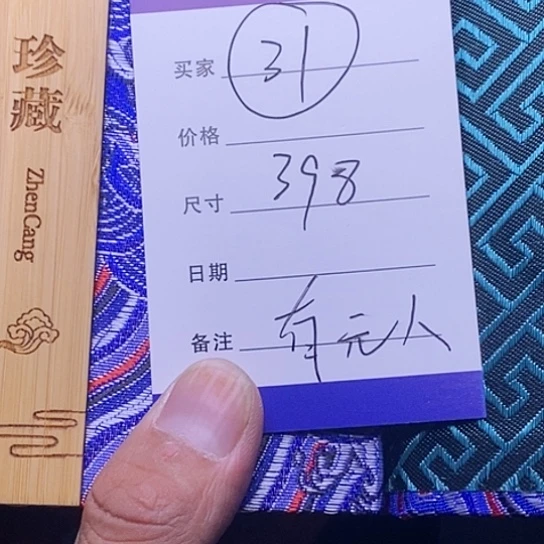 珍藏
ZhenCang
买家 31
价格
尺寸 398
日期
备注 有元人